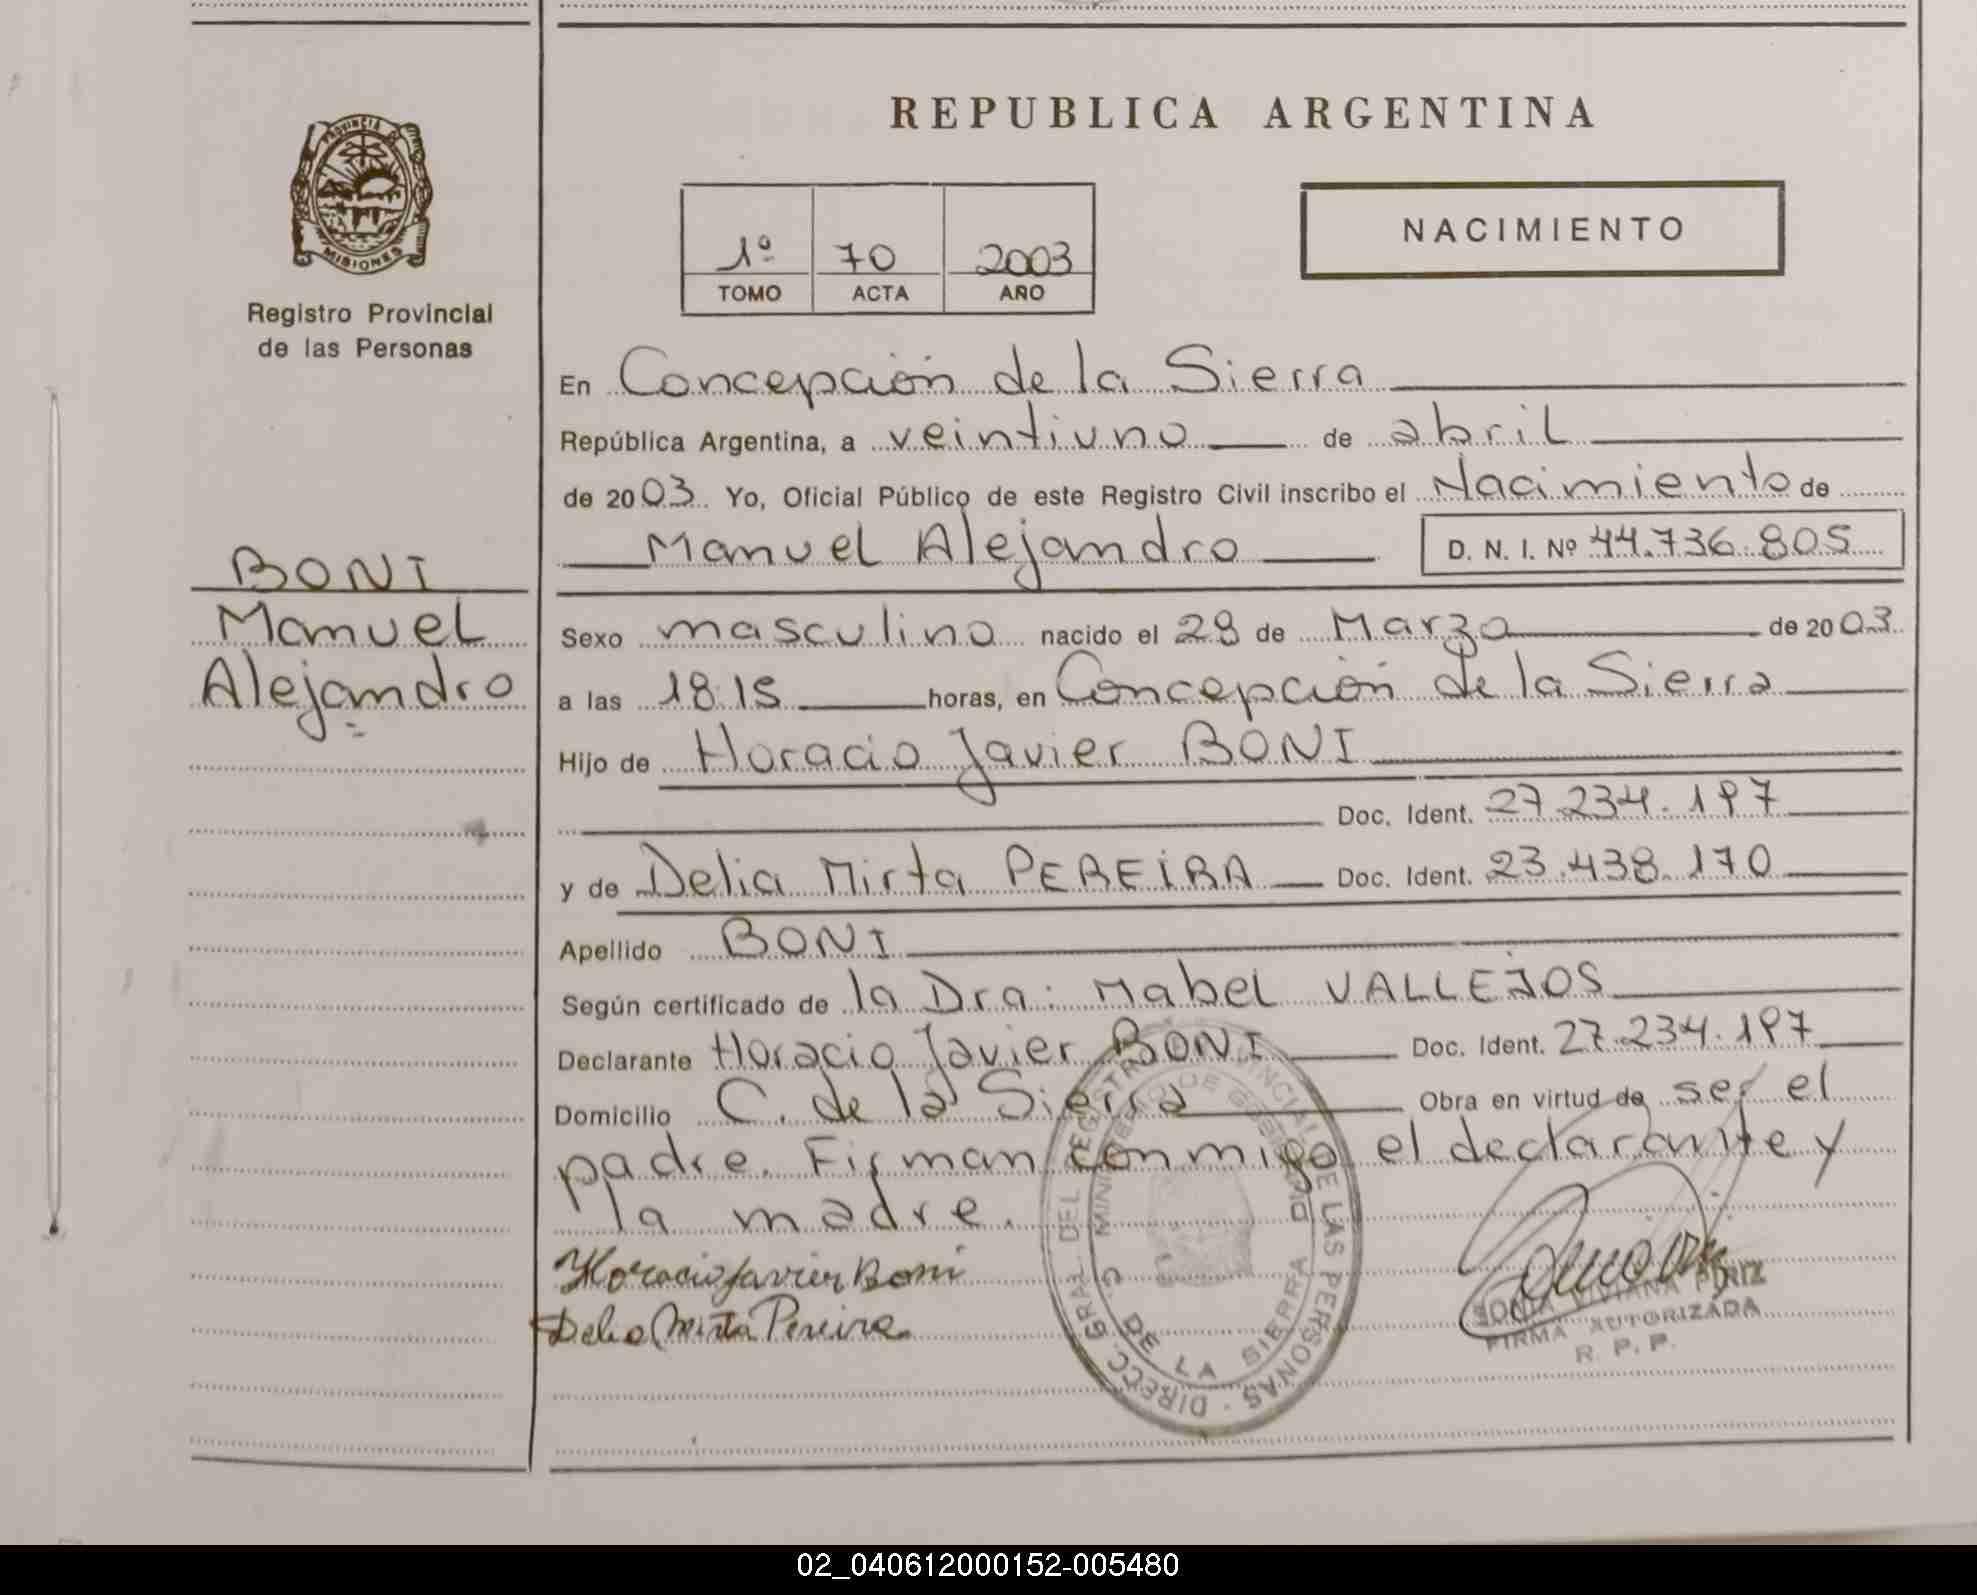 REPUBLICA ARGENTINA
PROVINCIA DE
MISIONES
Registro Provincial
de las Personas
1º 70 2003
TOMO ACTA AÑO
NACIMIENTO
BONI
Manuel
Alejandro
En Concepción de la Sierra
República Argentina, a veintiuno de abril
de 2003. Yo, Oficial Público de este Registro Civil inscribo el Nacimiento de
Manuel Alejandro D. N. I. Nº 44.736.805
Sexo masculino nacido el 28 de Marzo de 2003
a las 18.15 horas, en Concepción de la Sierra
Hijo de Horacio Javier BONI
Doc. Ident. 27.234.197
y de Delia Mirta PEREIRA Doc. Ident. 23.438.170
Apellido BONI
Según certificado de la Dra: Mabel VALLEJOS
Declarante Horacio Javier BONI Doc. Ident. 27.234.197
Domicilio C. de la Sierra Obra en virtud de ser el
padre. Firman conmigo el declarante y
la madre.
Horacio Javier Boni
Delia Mirta Pereira
DIREC. GRAL. DEL REGISTRO PROVINCIAL DE LAS PERSONAS
MINISTERIO DE GOBIERNO
C. DE LA SIERRA
SONIA VIVIANA
FIRMA AUTORIZADA
R. P. P.
02_040612000152-005480